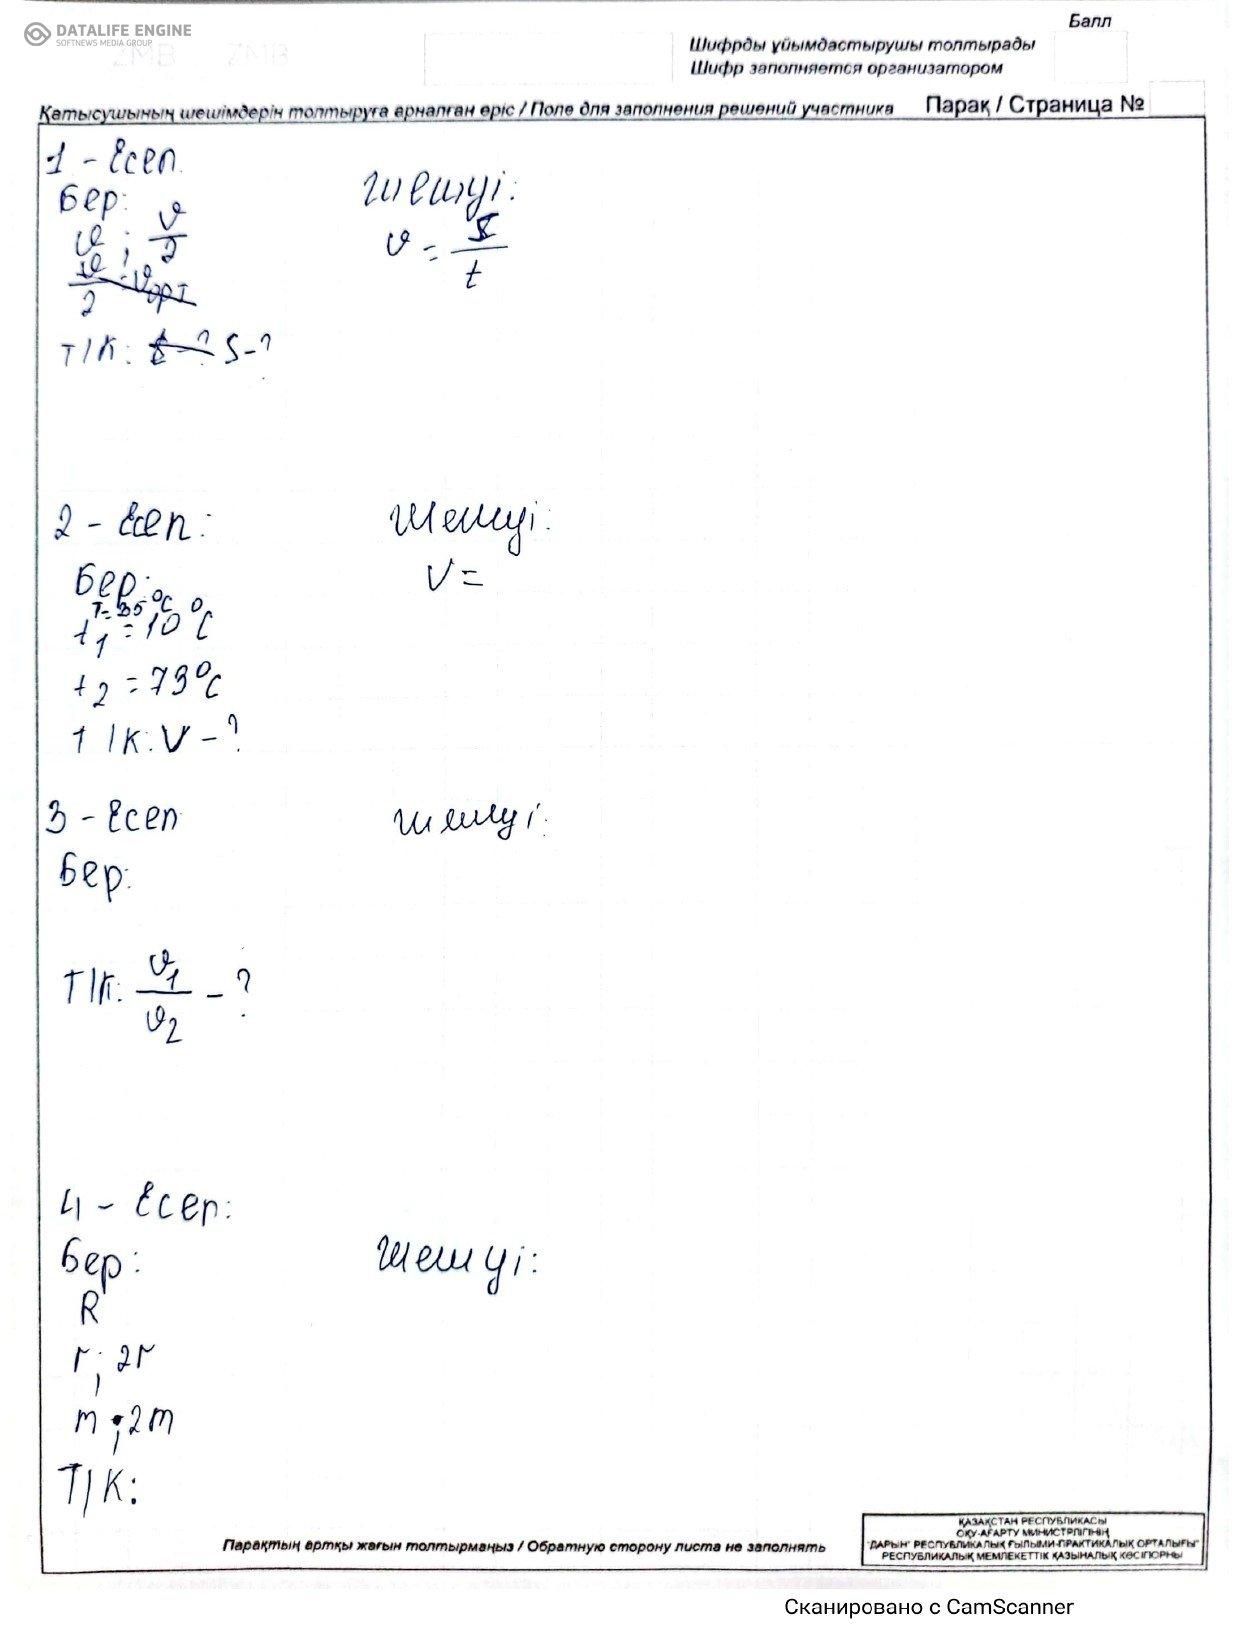 DATALIFE ENGINE
SOFTNEWS MEDIA GROUP
Балл
Шифрды ұйымдастырушы толтырады
Шифр заполняется организатором
Қатысушының шешімдерін толтыруға арналған өріс / Поле для заполнения решений участника
Парақ / Страница №
1 - Есеп
Бер:
ϑ ; ϑ/2
Т/К: S-?
Шешуі:
ϑ = S/t
2 - Есеп:
Бер:
T= 35 °C
t₁ = 10 °C
t₂ = 73 °C
Т/К: V - ?
Шешуі:
V =
3 - Есеп
Бер:
Т/К: ϑ₁/ϑ₂ - ?
Шешуі:
4 - Есеп:
Бер:
R
r; 2r
m ; 2m
Т/К:
Шешуі:
Парақтың артқы жағын толтырмаңыз / Обратную сторону листа не заполнять
ҚАЗАҚСТАН РЕСПУБЛИКАСЫ
ОҚУ-АҒАРТУ МИНИСТРЛІГІНІҢ
"ДАРЫН" РЕСПУБЛИКАЛЫҚ ҒЫЛЫМИ-ПРАКТИКАЛЫҚ ОРТАЛЫҒЫ"
РЕСПУБЛИКАЛЫҚ МЕМЛЕКЕТТІК ҚАЗЫНАЛЫҚ КӘСІПОРНЫ
Сканировано с CamScanner